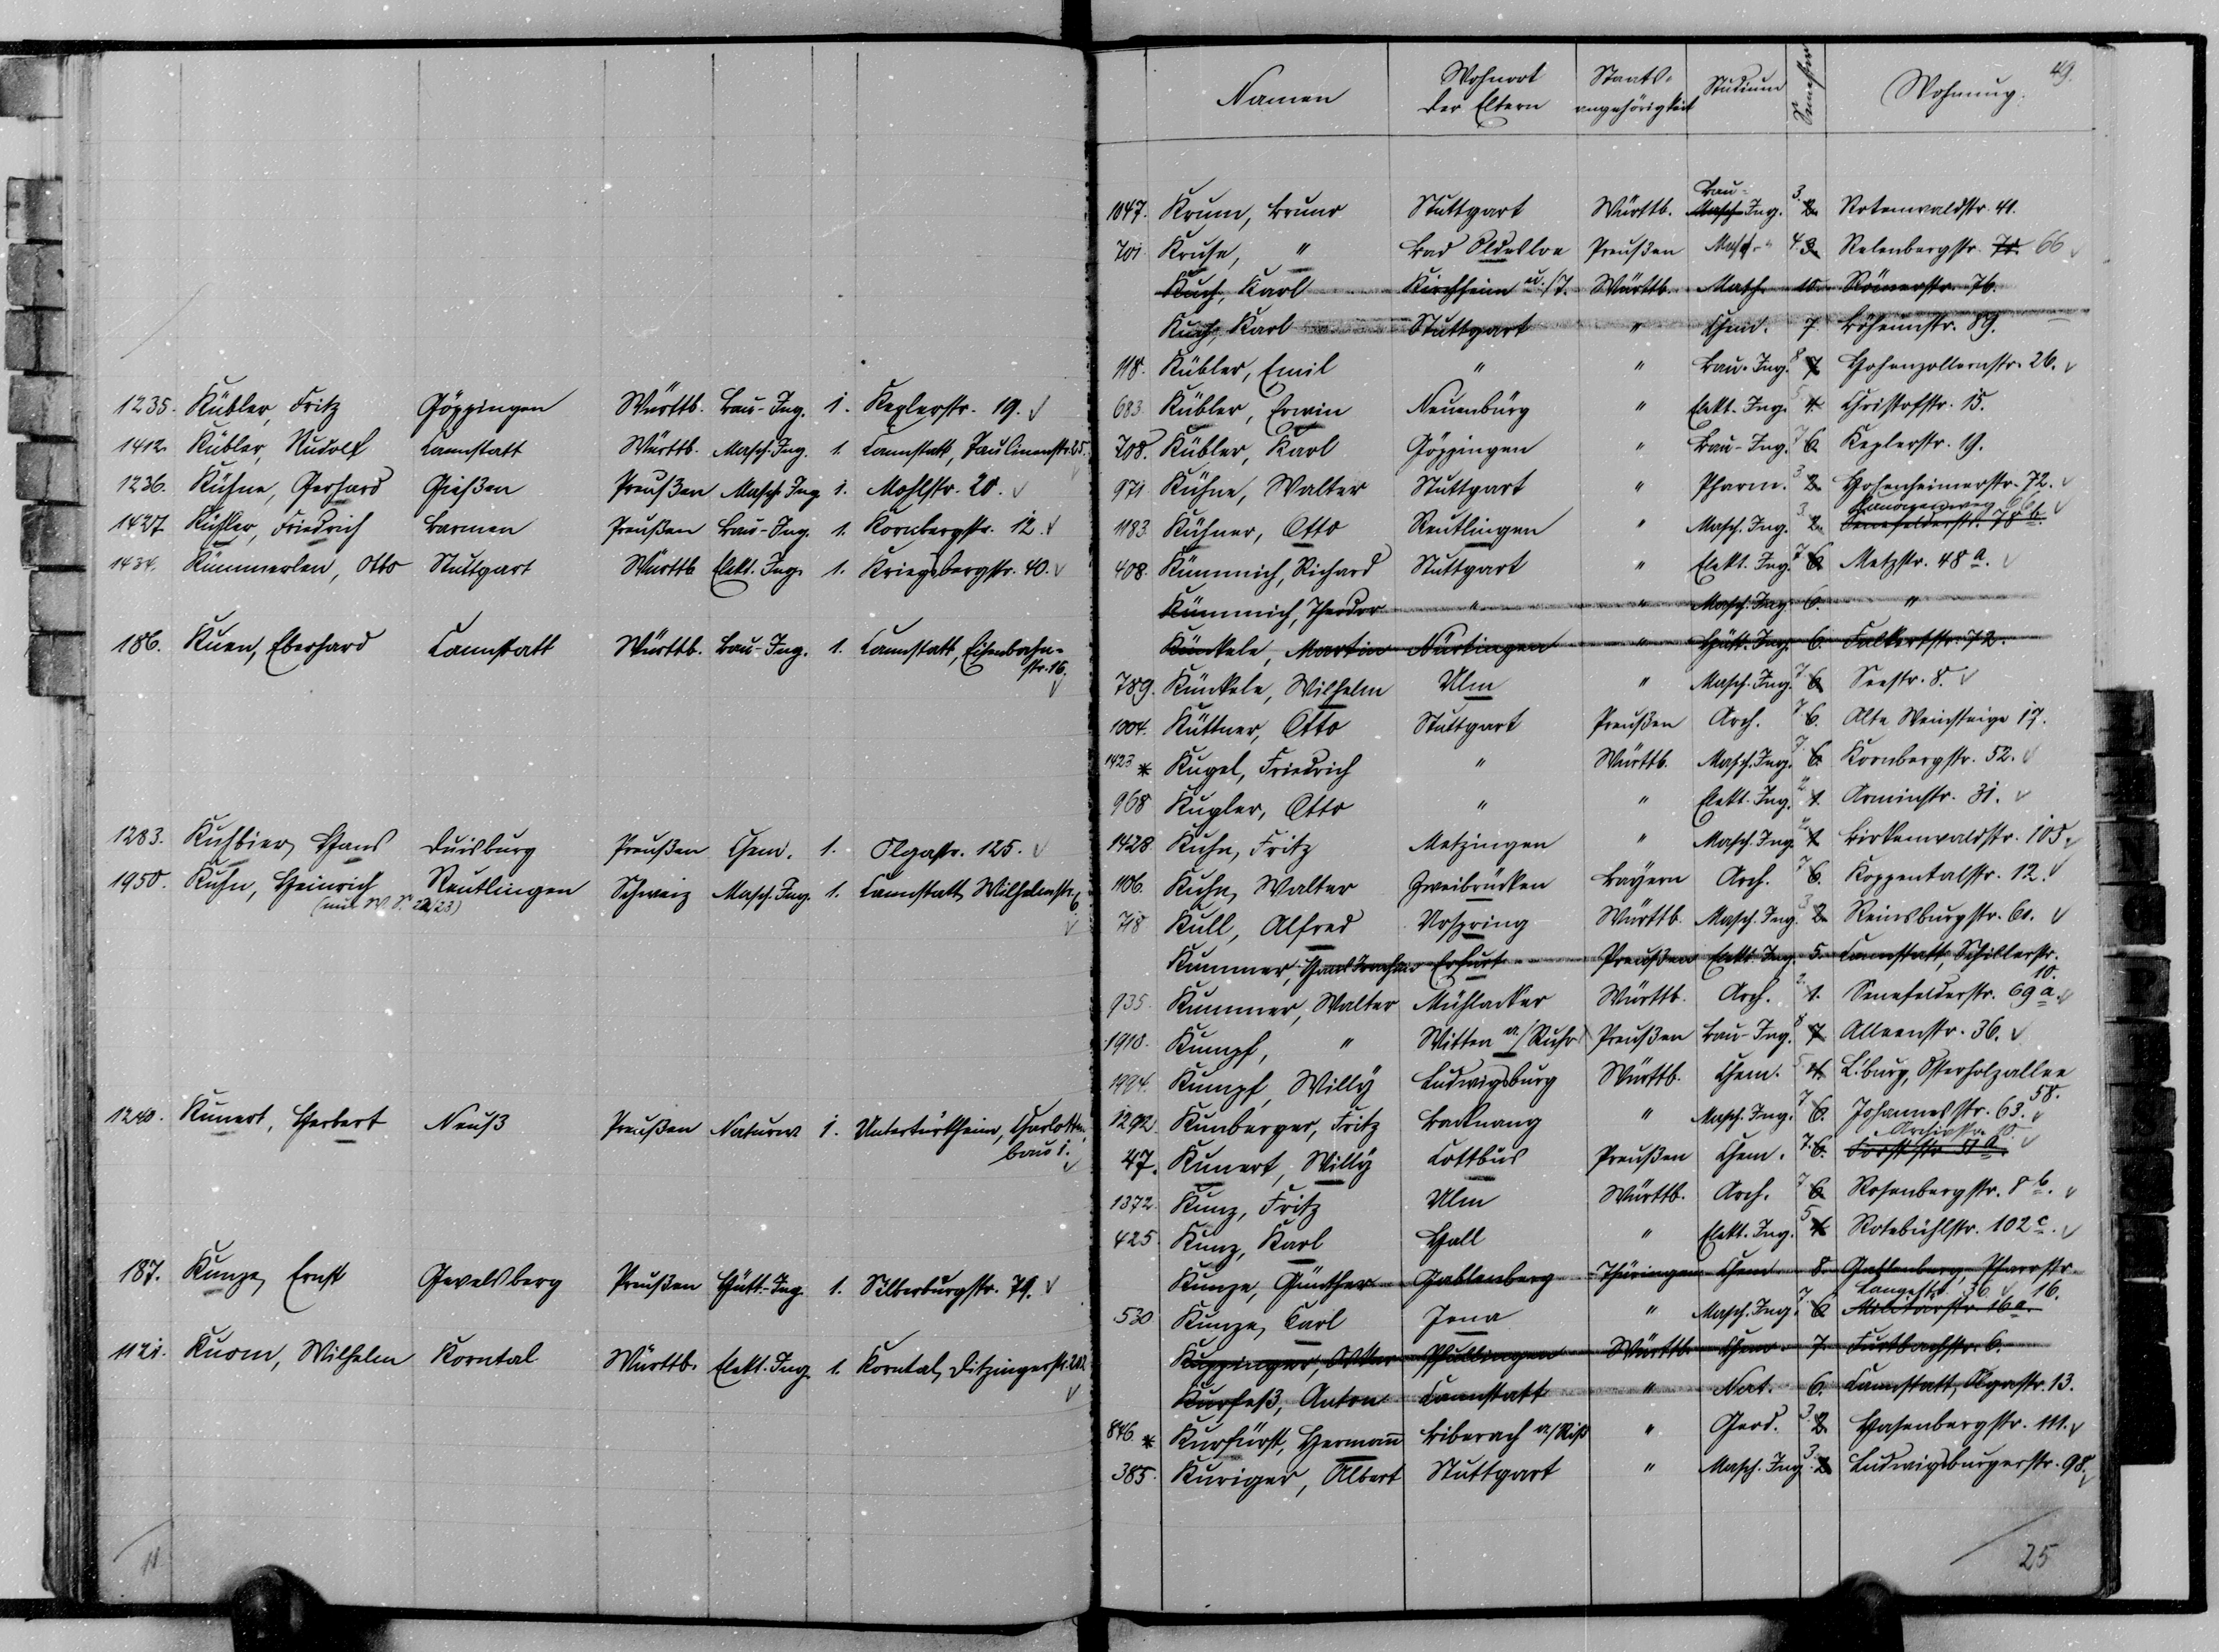 1235. Kübler, Fritz Göppingen Württb. Bau-Ing. 1. Keplerstr. 19.
1412. Kübler, Rudolf Cannstatt Württb. Masch.-Ing. 1. Cannstatt, Paulinenstr. 25.
1236. Kühne, Gerhard Gießen Preußen Masch. Ing. 1. Mohlstr. 20.
1427. Friedrich Barmen Preußen Bau-Ing. 1. Kornbergstr. 12.
1434. Kümmerlen, Otto Stuttgart Württb. Elekt. Ing. 1. Kriegsbergstr. 40.
186. Kuen, Eberhard Cannstatt Württb. Bau-Ing. 1. Cannstatt, Eisenbahn-
str. 16.
1283. Kuhbier, Hans Duisburg Preußen Chem. 1. Olgastr. 125.
1950. Kuhn, Heinrich Reutlingen Schweiz Masch. Ing. 1. Cannstatt, Wilhelmstr. 6
(nur W. S. 22/23)
1240. Kunert, Herbert Neuß Preußen Naturw. 1. Untertürkheim, Charlotten-
bau 1.
187. Kunze, Ernst Gevelsberg Preußen Hütt.-Ing. 1. Silberburgstr. 79.
1121. Kuom, Wilhelm Korntal Württb. Elekt. Ing. 1. Korntal, Ditzingerstr. 202
11
49.
Namen Wohnort der Eltern Staats-angehörigkeit Studium Semester Wohnung.
Bau- 3.
1047. Krum, Bruno Stuttgart Württb. Masch-Ing. 2. Rotenwaldstr. 41.
701. Kruse, " Bad Oldesloe Preußen Masch. " 4. 3. Relenbergstr. 70. 66
Kuch, Karl Kirchheim u./T. Württb. Masch. 10. Römerstr. 76.
Kuch, Karl Stuttgart " Chem. 7 Böheimstr. 89.
118. Kübler, Emil " " Bau-Ing. 8 7 Hohenzollernstr. 26.
683. Kübler, Erwin Neuenbürg " Elekt. Ing. 5. 4. Christofstr. 15.
708. Kübler, Karl Göppingen " Bau-Ing. 7 6. Keplerstr. 19.
971. Kühne, Walter Stuttgart " Pharm. 3. 2. Hohenheimerstr. 72.
1183. Kühner, Otto Reutlingen " Masch. Ing. 3. 2. Senefelderstr. 78 b.
408. Kümmich, Richard Stuttgart " Elekt. Ing. 7. 6. Metzstr. 48 a.
Kümmich, Theodor " " Masch. Ing. 6. "
Künkele, Martin Nürtingen " Hütt. Ing. 6. Falkertstr. 72.
789. Künkele, Wilhelm Ulm " Masch. Ing. 7. 6. Seestr. 8.
1004. Küttner, Otto Stuttgart Preußen Arch. 7. 6. Alte Weinsteige 17.
1423 * Kugel, Friedrich " Württb. Masch. Ing. 7. 6. Kornbergstr. 52.
968 Kugler, Otto " " Elekt. Ing. 2. 1. Arminstr. 31.
1428. Kuhn, Fritz Metzingen " Masch. Ing. 2. 1. Birkenwaldstr. 105.
1106. Kuhn, Walter Zweibrücken Bayern Arch. 7. 6. Koppentalstr. 12.
718 Kull, Alfred Urspring Württb. Masch. Ing. 3. 2. Reinsburgstr. 60.
Kummer, Erfurt Preußen Elekt. Ing. 5. Cannstatt, Schillerstr.
10.
935. Kummer, Walter Mühlacker Württb. Arch. 2. 1. Senefelderstr. 69 a.
1910. Kumpf, " Witten a/Ruhr Preußen Bau-Ing. 8 7 Alleenstr. 36.
1994. Kumpf, Willy Ludwigsburg Württb. Chem. 5. 4. L'burg, Osterholzallee
58.
1292. Kunberger, Fritz Backnang " Masch. Ing. 7. 6. Johannesstr. 63.
Archivstr. 10.
47. Kunert, Willy Cottbus Preußen Chem. 7. 6. Forststr. 51 a.
1372. Kunz, Fritz Ulm Württb. Arch. 7 6. Rosenbergstr. 8 b.
425. Kunz, Karl Hall " Elekt. Ing. 5 4. Rotebühlstr. 102 c.
Kunze, Günther Gablenberg Thüringen Chem 8. Gablenberg, Pfarrstr.
Langestr. 36 16.
530. Kunze, Carl Jena " Masch. Ing. 7. 6. Militärstr. 16 a.
Kuppinger, Pfullingen Württb. Chem. 7. Furtbachstr. 6.
Kurfeß, Anton Cannstatt " Nat. 6. Cannstatt, Olgastr. 13.
846. * Kurfürst, Hermann Biberach a/Riß " Geod. 3. 2. Hasenbergstr. 111.
385. Kuriger, Albert Stuttgart " Masch. Ing. 3. 2. Ludwigsburgerstr. 98.
25